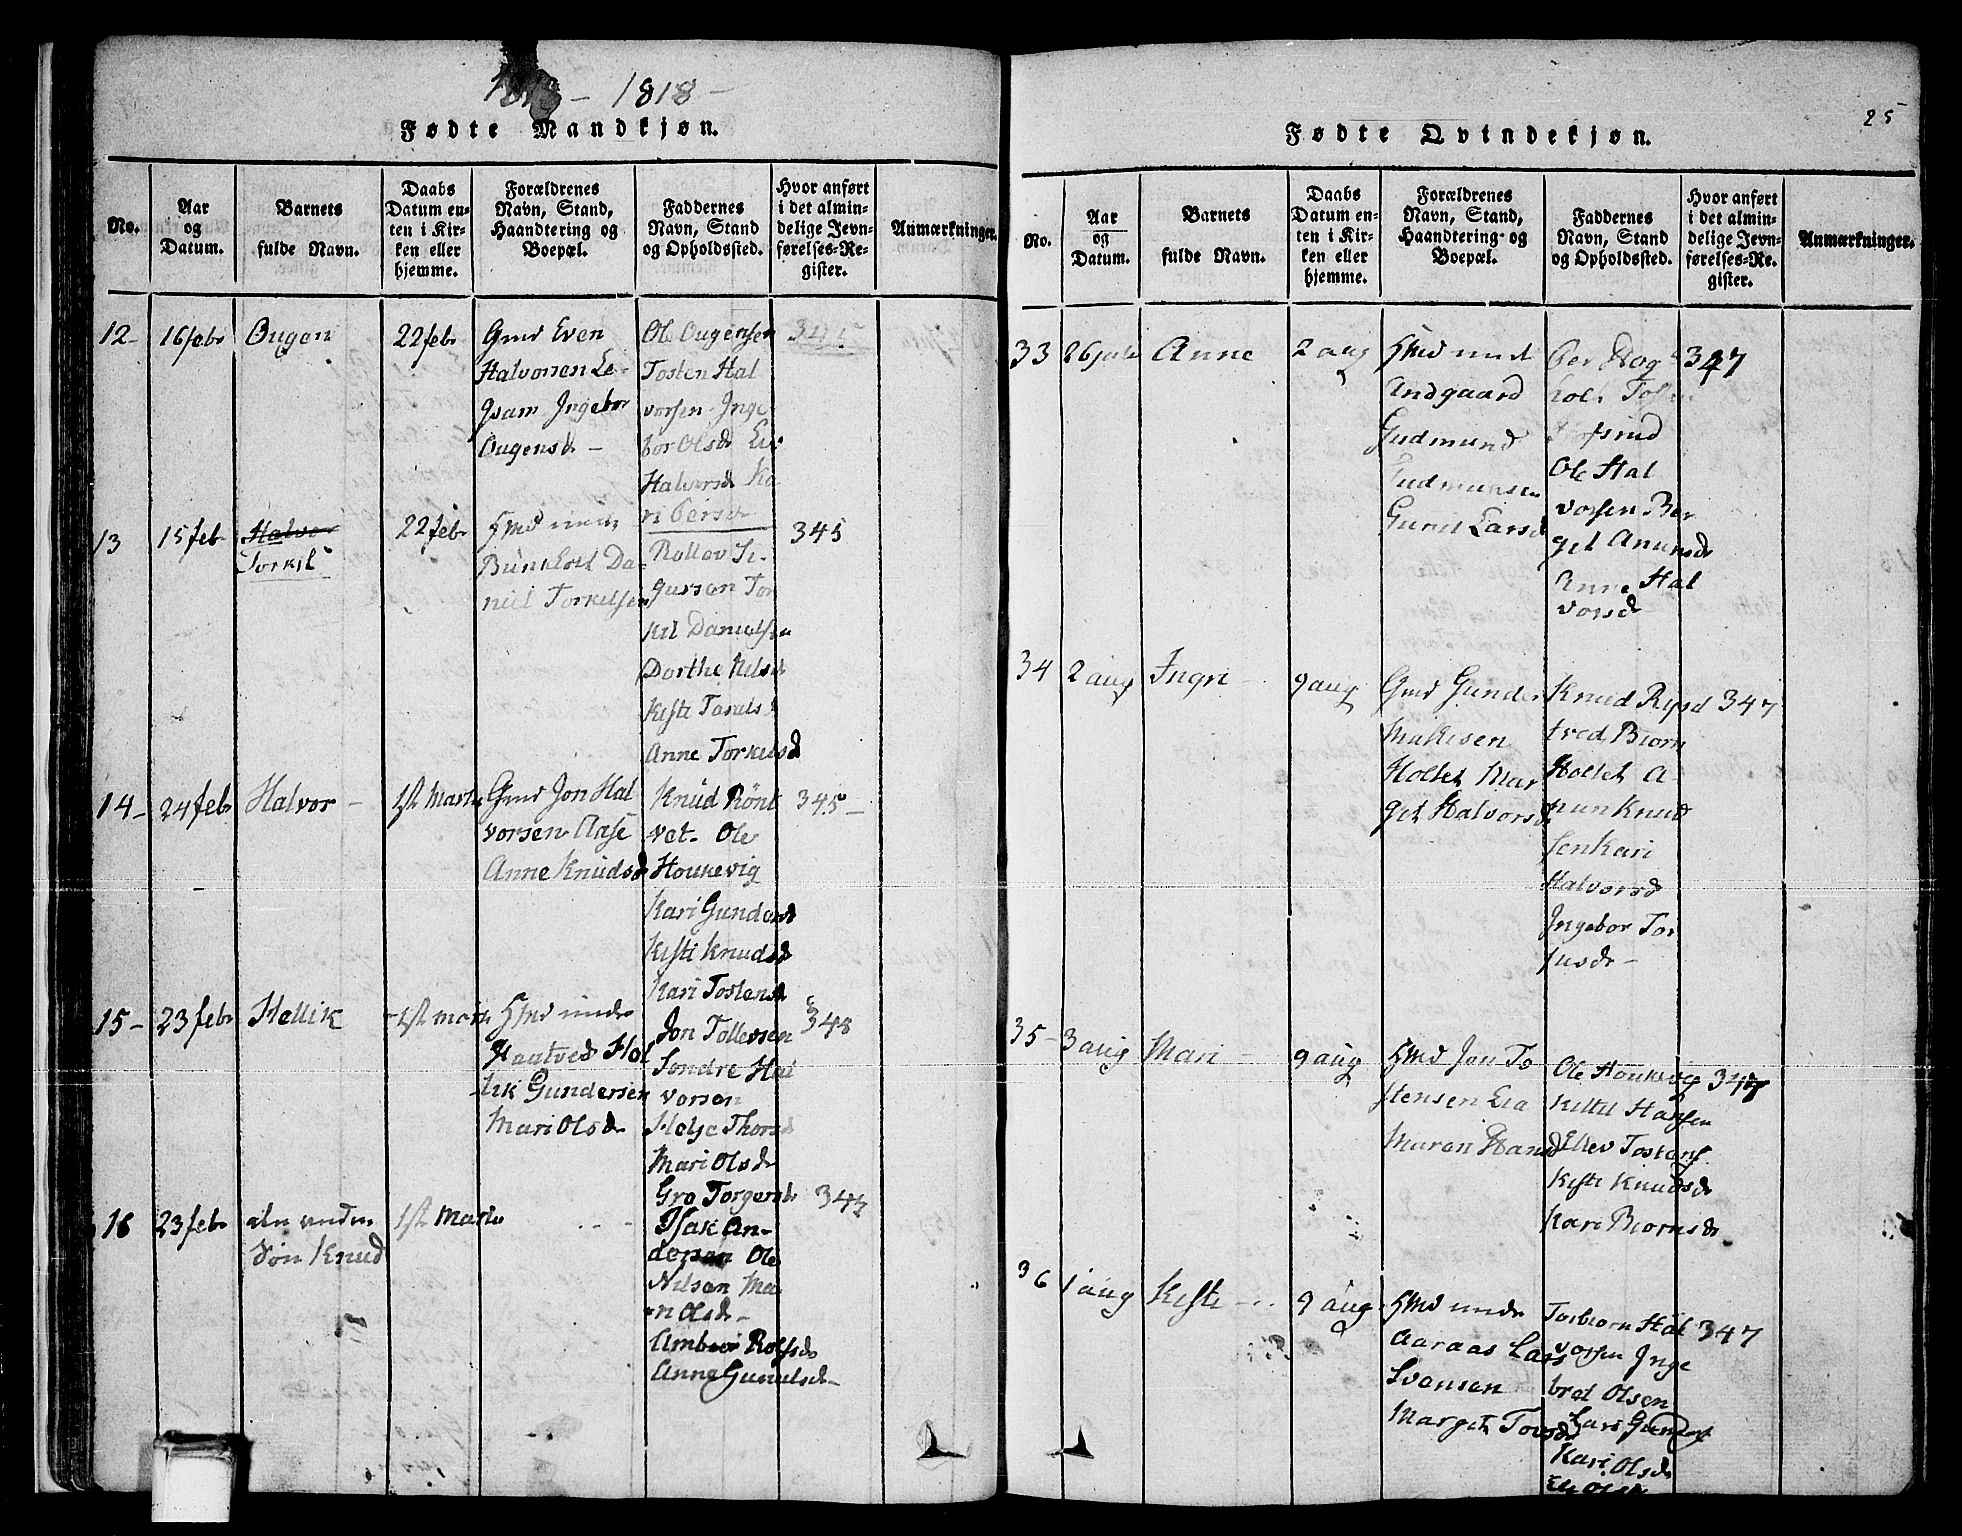 1818 -
25
Fødte Mandkjøn.
No.
Aar og Datum.
Barnets fulde Navn.
Daabs Datum enten i Kirken eller hjemme.
Forældrenes Navn, Stand, Haandtering og Boepæl.
Faddernes Navn, Stand og Opholdssted.
Hvor anført i det almindelige Jevnførelses-Register.
Anmærkninger.
12 -
16 febr
Ougen
22 febr
Gmd Even
Halvorsen Le-
Ingebor
Ougensd -
Ole Ougensen
Tosten Hal
vorsen Inge
bor Olsd
Halvorsd Ka
ri Persd
345
13
15 feb
Halvor
Torkil
22 febr
Hmd unde
Da-
niel Torkelsen
Rollev Si-
gursen Tor
kil Danielsen
Dorthe Nelsd
Kisti
Anne Torkelsd
345
14 -
24 feb
Halvor -
1st Marti
Gmd Jon Hal
vorsen Aase
Anne Knudsd
Knud Rönt
vet - Ole
Houkevig
Kari Gundersd
Kisti Knudsd
Kari Tostensd
345 -
15 -
23 febr
Hellik
1st marti
Hmd unde
Haatved Hel
lik Gundersen
Mari Olsd
Jon Tollevsen
Sondre Hal
vorsen
Helje Thorsd
Mari Olsd
Gro Torgersd
345
16
23 febr
Søn Knud
1st Marti
Isak An-
dersen Ole
Nilsen Ma
ri Olsd -
Amboer Rolfsd
Anne Gunulsd -
347
Fødte Qvindekjøn.
No.
Aar og Datum.
Barnets fulde Navn.
Daabs Datum enten i Kirken eller hjemme.
Forældrenes Navn, Stand, Haandtering og Boepæl.
Faddernes Navn, Stand og Opholdssted.
Hvor anført i det almindelige Jevnførelses-Register.
Anmærkninger.
33
26 jule
Anne
2 aug
Hmd unde
Andgaard
Gudmund
Gudmunsen
Gunil Larsd
Per
Ole Hal
vorsen Ber
get Amunsd
Anne Hal
vorsd
347
34
2 aug
Ingri -
9 aug
Gmd Gunder
Holtet Mar
get Halvorsd
Knud
Biorn
Holtet A
mun Knud
sen Kari
Halvorsd
Ingebor Tor
jusd -
347
35 -
3 aug
Mari -
9 aug
Hmd Jon To
stensen Lia
Maren Hansd
Ole Houkevig
Kittil Hansen
Ellev Tostens
Kisti Knudsd
Kari Biornsd
347
36
1 aug
Kisti -
9 aug
Hmd unde
Aaraas Lars
Svensen
Marget Tovsd
Torbiorn Hal
vorsen Inge
bret Olsen
Lars Gunders
Kari Olsd
347